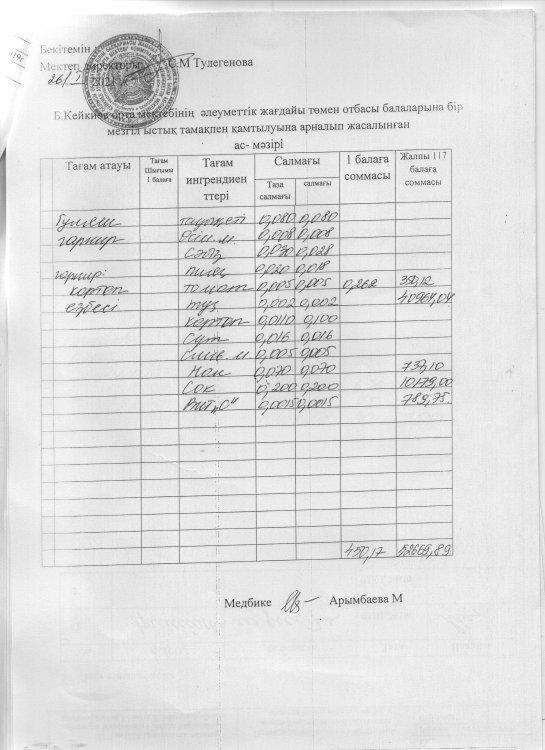 Бекітемін
Мектеп директоры С.М Тулегенова
26/I
Б.Кейкиов орта мектебінің әлеуметтік жағдайы төмен отбасы балаларына бір
мезгіл ыстық тамақпен қамтылуына арналып жасалынған
ас- мәзірі
Тағам атауы Тағам Шығымы 1 балаға Тағам ингрендиен ттері Салмағы 1 балаға соммасы Жалпы 117 балаға соммасы
Таза салмағы салмағы
Гуляш 0,080 0,080
гарнир 0,008 0,008
сәбіз 0,030 0,028
гарнир: пияз 0,020 0,018
картоп томат 0,005 0,005 0,262
езбесі тұз 0,002 0,002 40964,04
картоп 0,0110 0,100
Сүт 0,016 0,016
0,005 0,005
Нан 0,070 0,070 737,10
Сок 0,200 0,200 10179,00
Вит „С“ 0,0015 0,0015 789,75
450,17 52669,89
Медбике Арымбаева М